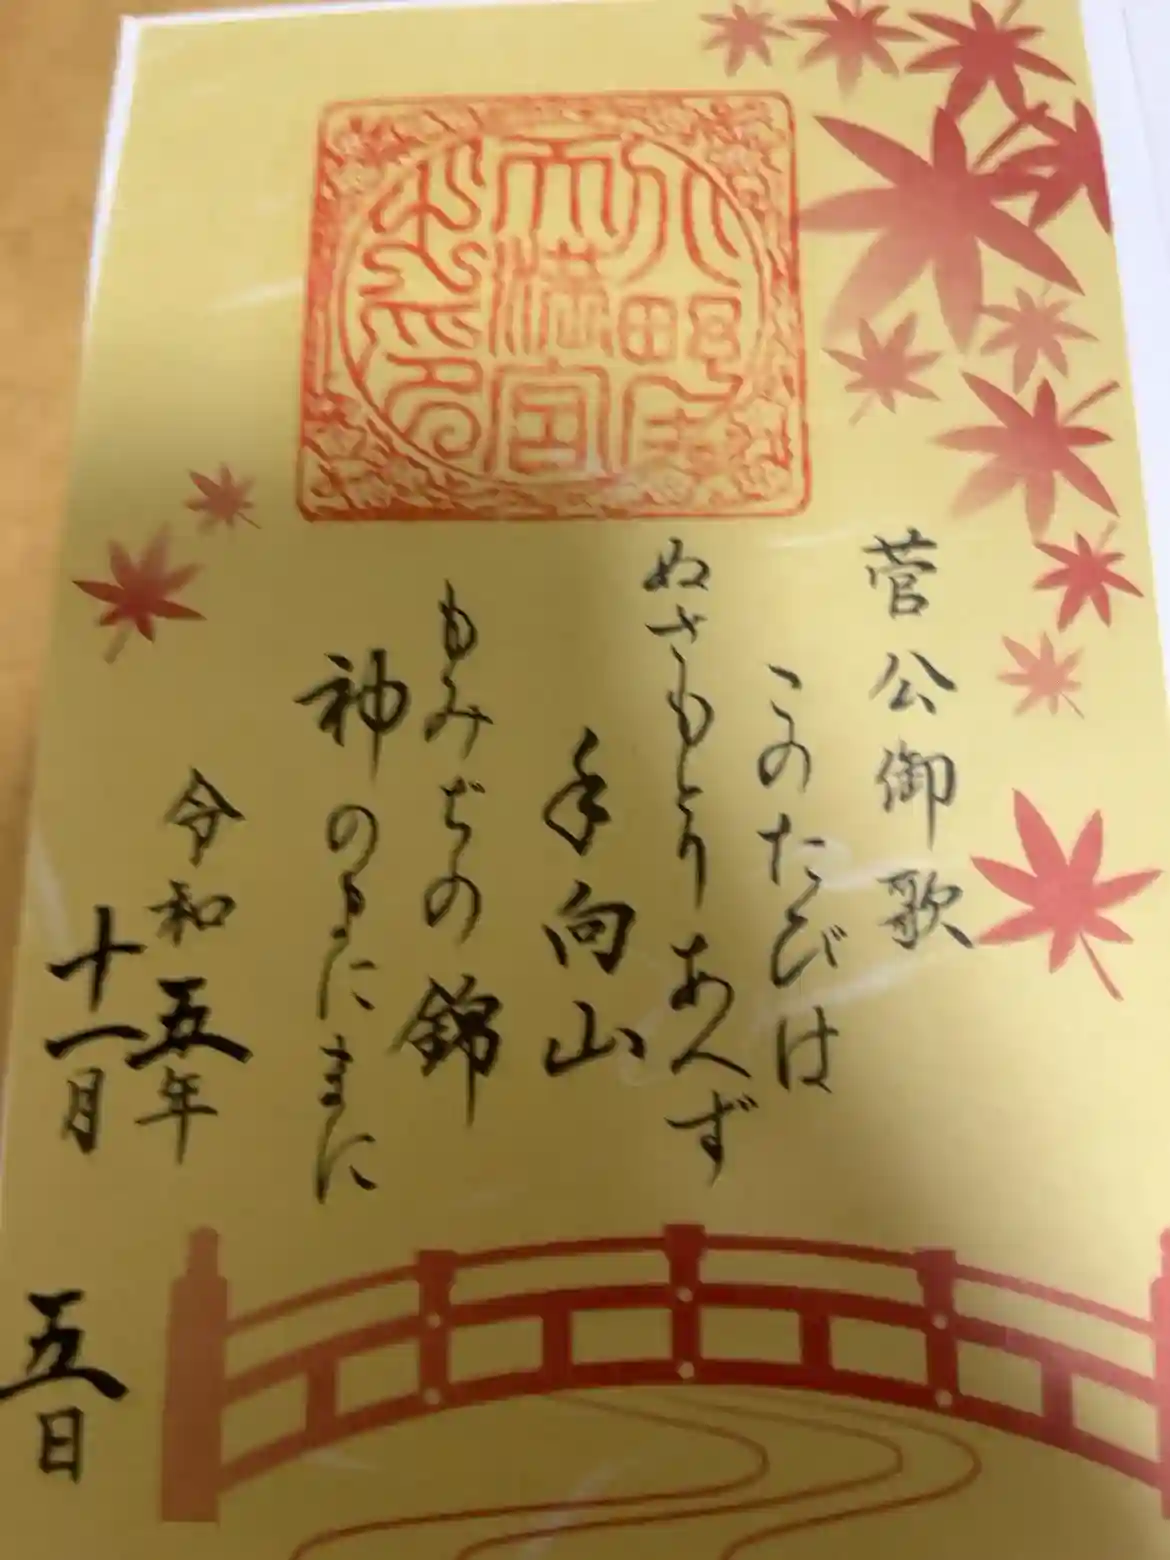 天満宮
之印
菅公御歌
このたびは
ぬさもとりあへず
手向山
もみぢの錦
神のまにまに
令和五年
十一月
五日